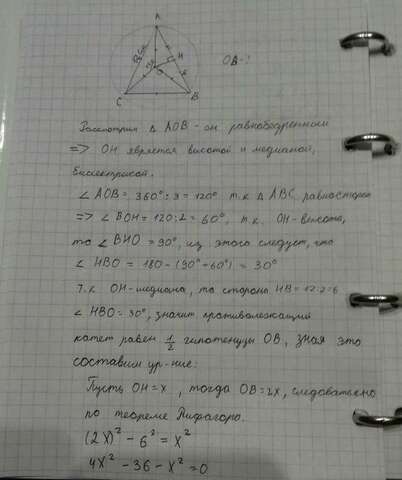 A
OB-?
H
O
C
B
Рассмотрим △ AOB - он равнобедренный
=> OH является высотой и медианой,
биссектрисой.
∠ AOB = 360° : 3 = 120° т.к △ ABC равносторон
=> ∠ BOH = 120:2 = 60°, т.к. OH - высота,
то ∠ BHO = 90°, из этого следует, что
∠ HBO = 180 - (90° + 60°) = 30°
т.к OH - медиана, то сторона HB = 12:2=6
∠ HBO = 30°, значит противолежащий
катет равен 1/2 гипотенузы OB, зная это
составим ур-ние:
Пусть OH = x, тогда OB = 2x, следовательно
по теореме Пифагора.
(2x)² - 6² = x²
4x² - 36 - x² = 0